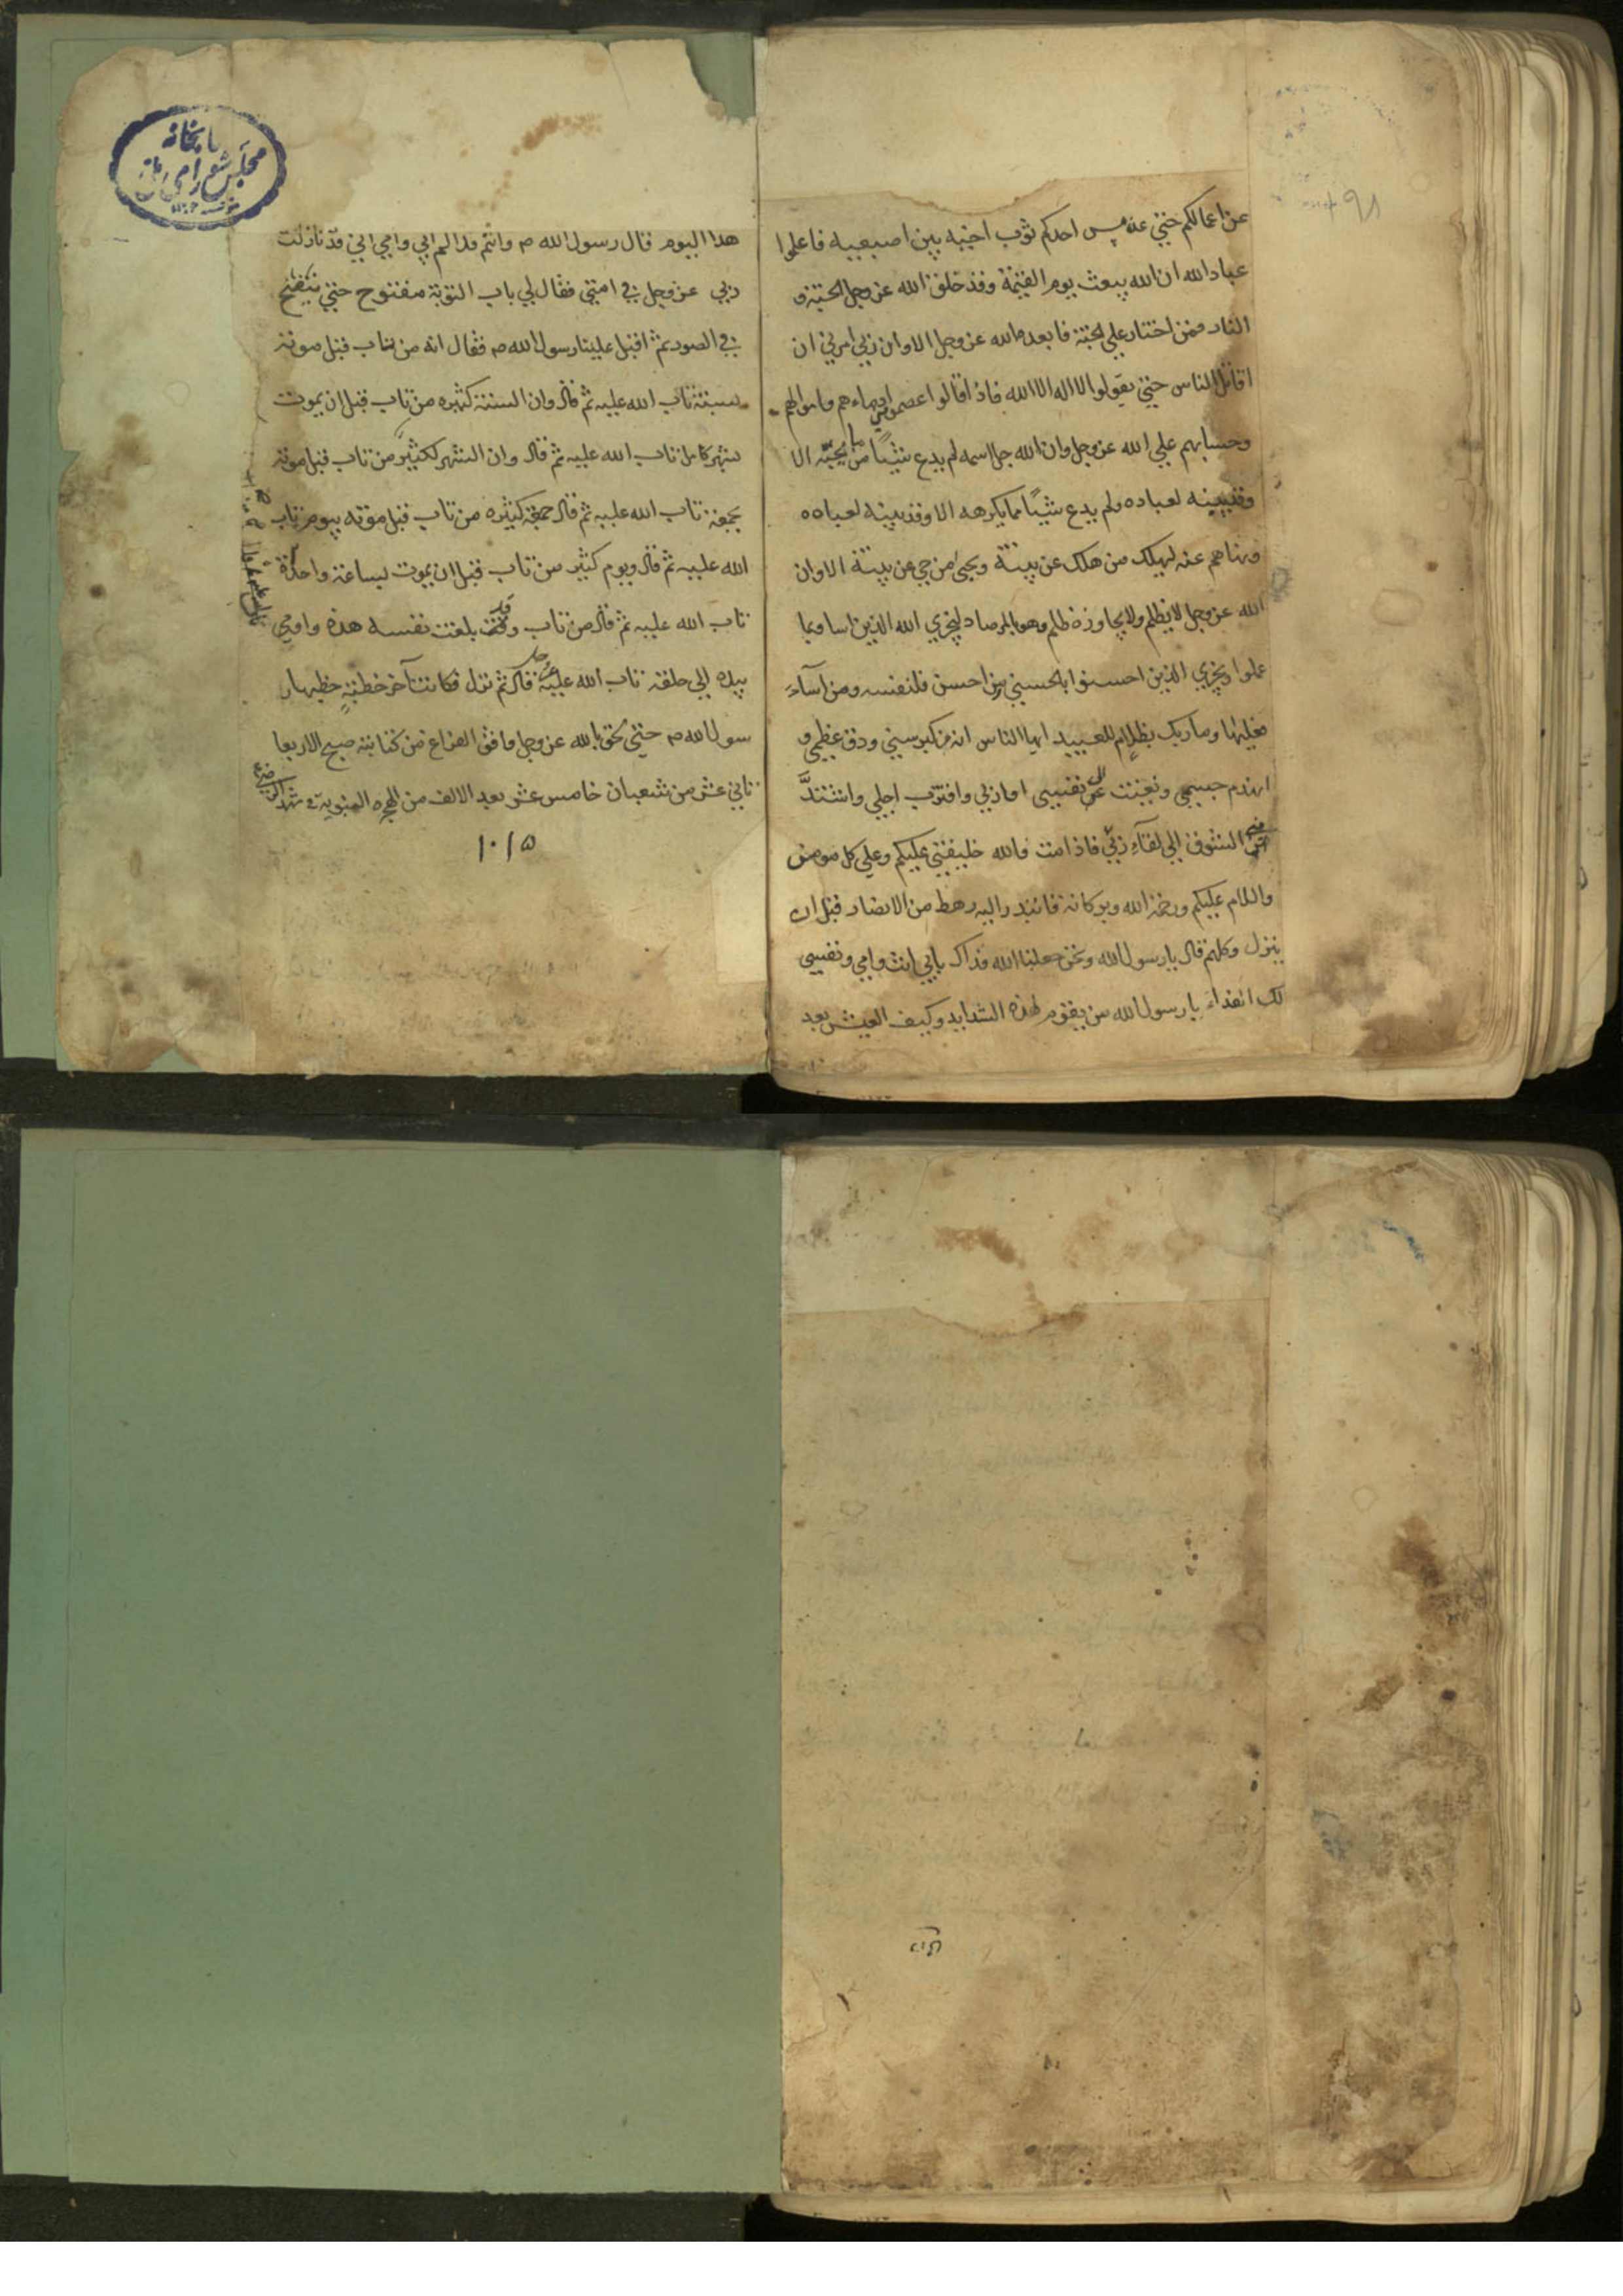 عن اعمالكم حتي عن مس احدكم ثوب اخيه بين اصبعيه فاعلموا
عباد الله ان الله يبعث يوم القيمة وقد خلق الله عز وجل الجنة و
النار فمن اختار علي الجنة فابعده الله عز وجل الا وان ربي امرني ان
اقاتل الناس حتي يقولوا لا اله الا الله فاذا قالوا اعصموا مني دماءهم واموالهم
وحسابهم علي الله عز وجل وان الله جل اسمه لم يدع شيئًا مما يحبّه الا
وقد بينه لعباده ولم يدع شيئًا مما يكرهه الا وقد بينه لعباده
ونهاهم عنه ليهلك من هلك عن بينة ويحيي من حي عن بينة الا وان
الله عز وجل لا يظلم ولا يجاوزه ظلم وهو بالمرصاد ليجزي الله الذين اساوا بما
عملوا ويجزي الذين احسنوا بالحسني من احسن فلنفسه ومن اسآء
فعليها وما ربك بظلام للعبيد ايها الناس انه من كبر سني ودق عظمي و
انهدم جسمي ونعيت الي نفسي امار ربي واقترب اجلي واشتدّ
مني الشوق الي لقآء ربّي فاذا مت فالله خليفتي عليكم وعلي كل مومن
والسلام عليكم ورحمة الله وبركاته فابتدر اليه رهط من الانصار قبل ان
ينزل وكلهم قال يا رسول الله ونحن جعلنا الله فداك بابي انت وامي ونفسي
لك الفداء يا رسول الله من يقوم لهذه الشدايد وكيف العيش بعد
هذا اليوم فقال رسول الله ص وانتم فدا لكم ابي وامي اني قد نازلت
ربي عز وجل في امتي فقال لي باب التوبة مفتوح حتي ينفخ
في الصور ثم اقبل علينا رسول الله ص فقال انه من تاب قبل موته
بسنة تاب الله عليه ثم قال وان السنة كثيره من تاب قبل ان يموت
بشهر كامل تاب الله عليه ثم قال وان الشهر لكثير من تاب قبل موته
بجمعة تاب الله عليه ثم قال جمعة كثيره من تاب قبل موته بيوم تاب
الله عليه ثم قال ويوم كثير من تاب قبل ان يموت بساعة واحدة
تاب الله عليه ثم قال من تاب وقد بلغت نفسه هذه واومي
بيده الي حلقه تاب الله عليه قال ثم نزل فكانت آخر خطبةٍ خطبها ر
سول الله ص حتي لحق بالله عز وجل وافق الفراغ من كتابته صبح الاربعا
ثاني عشر من شعبان خامس عشر بعد الالف من الهجره النبويه
۱۰۱۵
كتابخانه
مجلس شوراى ملى
۹۸